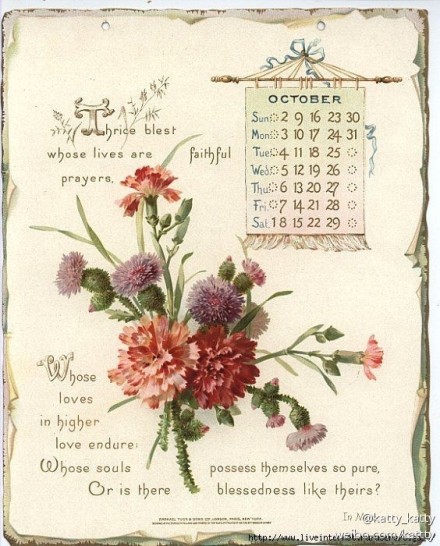 Thrice blest
whose lives are faithful
prayers,
OCTOBER
Sun: 2 9 16 23 30
Mon: 3 10 17 24 31
Tue: 4 11 18 25
Wed: 5 12 19 26
Thu: 6 13 20 27
Fri: 7 14 21 28
Sat: 1 8 15 22 29
Whose
loves
in higher
love endure:
Whose souls possess themselves so pure,
Or is there blessedness like theirs?
In M
@katty_katty
weibo.com/katty
http://www.liveinter